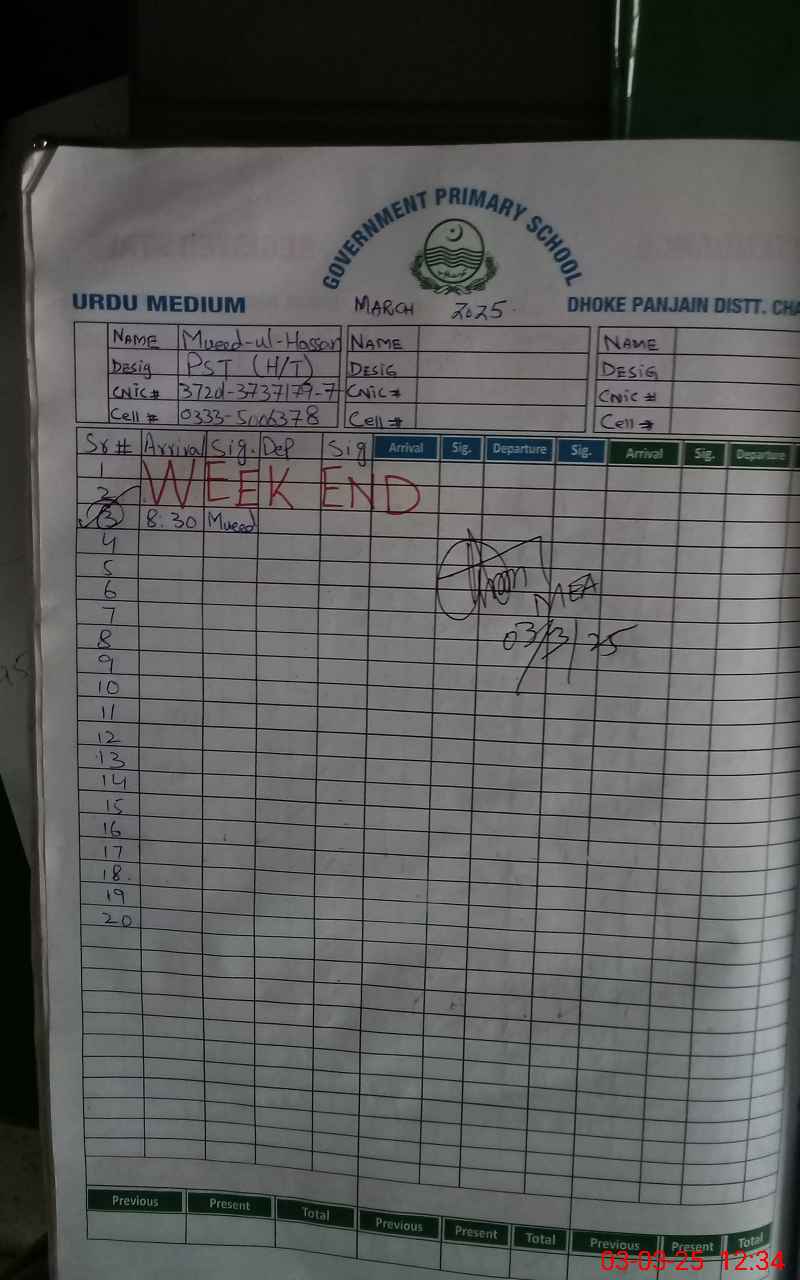 GOVERNMENT PRIMARY SCHOOL
URDU MEDIUM MARCH 2025 DHOKE PANJAIN DISTT. CHA
NAME Mueed-ul-Hassan NAME NAME
DESIG PST (H/T) DESIG DESIG
CNIC# CNIC# CNIC#
Cell # Cell # Cell #
Sr # Arrival Sig. Dep Sig Arrival Sig. Departure Sig. Arrival Sig. Departure
1
WEEK END
2
3 8:30 Mueed
4
5
6 MEA
7
8 03/3/25
9
10
11
12
13
14
15
16
17
18.
19
20
Previous Present Total Previous Present Total Previous Present Total
03-03-25 12:34